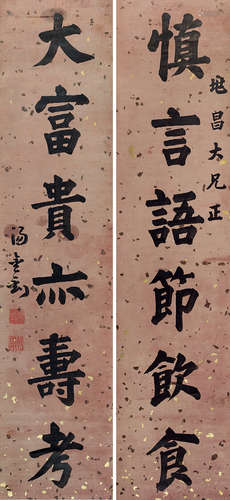 慎言語節飲食
昌大兄正
大富貴亦壽考